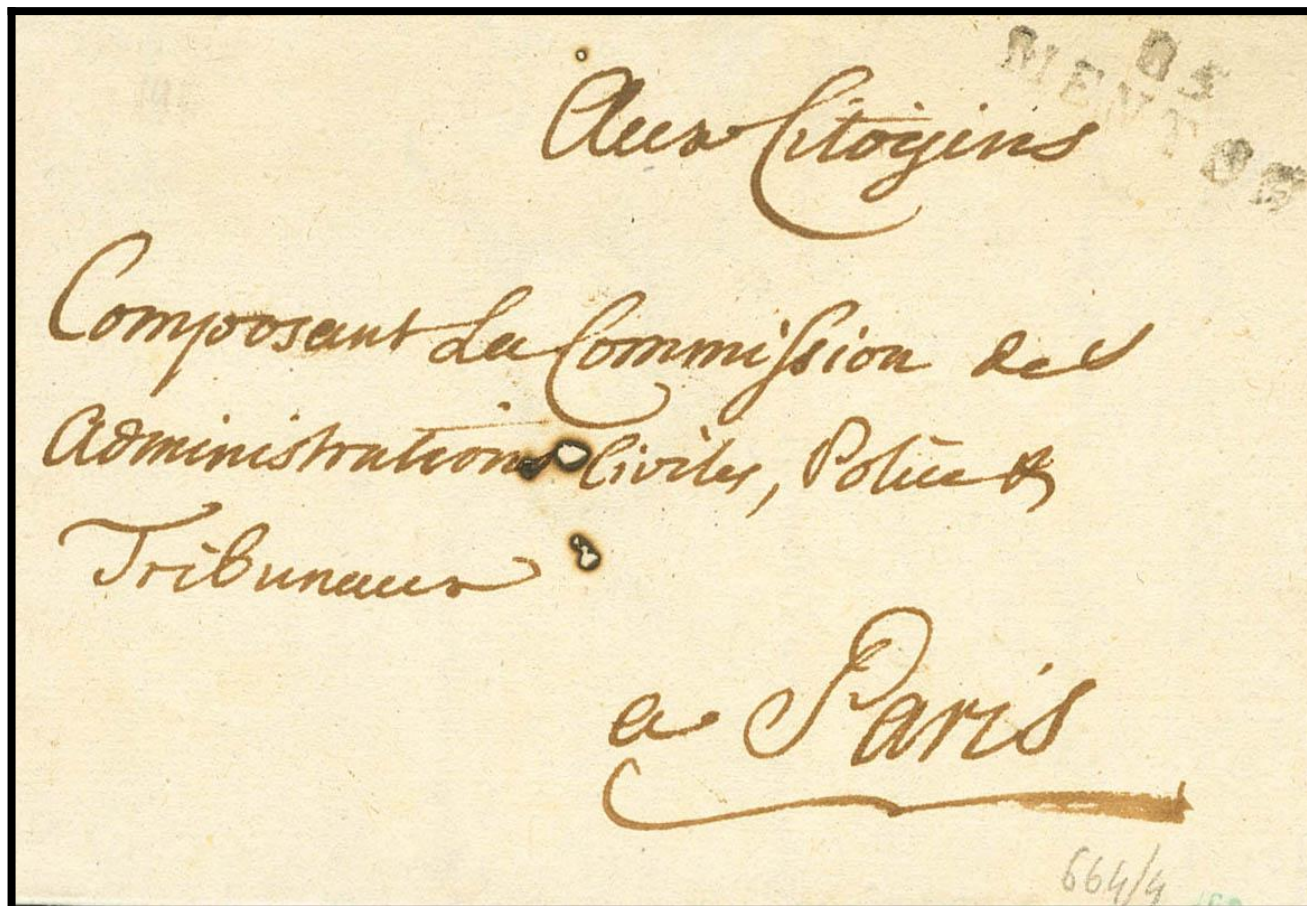 85
MENTON
Aux Citoyens
Composant La Commission des
administrations Civiles, Police &
Tribunaux
a Paris
664/4